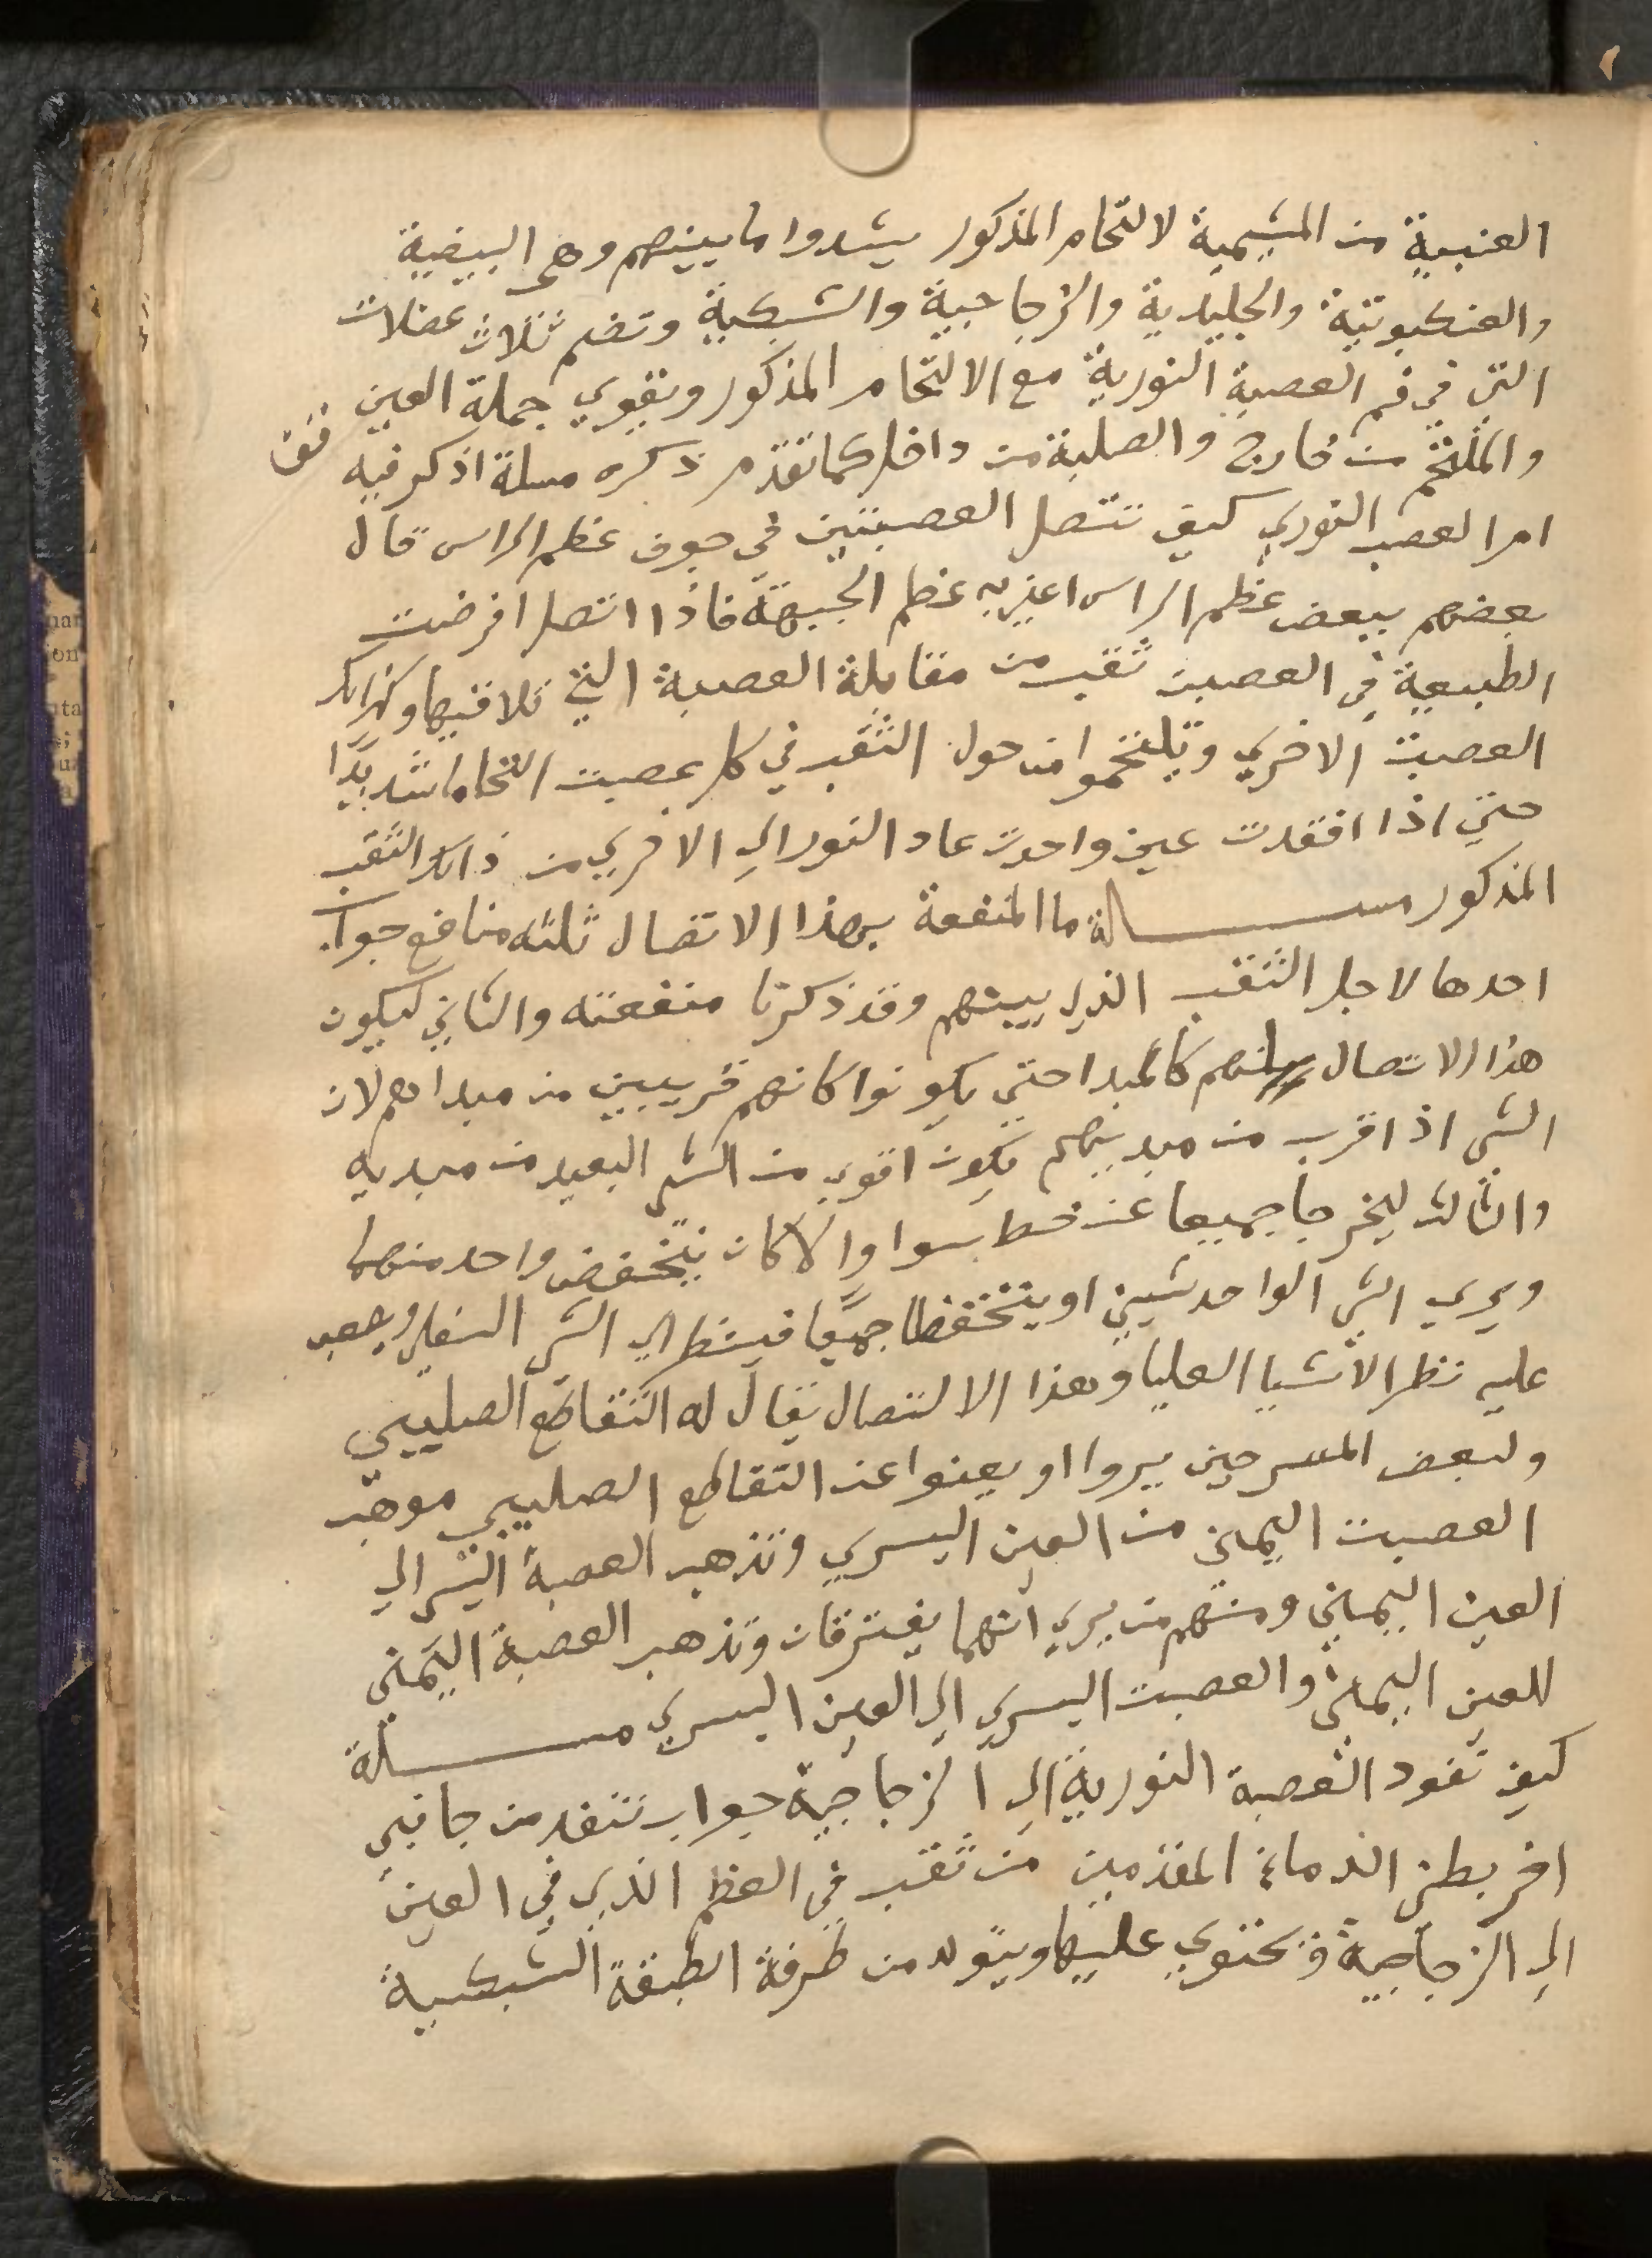 العنبية من المشيمية لالتحام المذكور يشدوا ما بينهم وهى البيضية
والعنكبوتية والجليدية والزجاجية والشبكية وتضم ثلاث عضلات
التي في فم العصبة النورية مع الالتحام المذكور وتقوي جملة العين
والملتحم من خارج والصلبة من داخل كما تقدم ذكره مسلة اذكر فيه
امر العصب النوري كيف تتصل العصبتين في جوف عظم الراس قال
بعضهم ببعض عظم الراس اعني به عظم الجبهة فاذا اتصلا فرضت
الطبيعة في العصبت ثقب من مقابلة العصبة التي تلاقيها وكذالك
العصبت الاخري ويلتحموا من حول الثقب في كل عصبت التحاما شديدًا
حتي اذا افتقدت عين واحدت عاد النور الي الاخري من ذالك الثقب
المذكور مسالة ما المنفعة بهذا الاتصال ثلثه منافع جواب
احدها لاجل الثقب الذي بينهم وقد ذكرنا منفعته والثاني ليكون
هذا الاتصال كالمبدا حتي يكونوا كانهم قريبين من مبداهم لان
الشي اذا قرب من مبديهم يكون اقوي من الشي البعيد من مبديه
والثالث ليخرجا جميعا عن خط سوا والا كان ينخفض واحد منهما
ويري الشي الواحد شيين او ينخفظا جميعًا فينظر الي الشي السفلي ويصعب
عليه نظر الاشيا العليا وهذا الالتصال يقال له التقاطع الصليبي
ولبعض المسرحين يروا او يعنوا عن التقاطع الصليبي موهب
العصبت اليمني من العين اليسري وتذهب العصبة اليسر الي
العين اليمني ومنهم من يري انهما يفترقان وتذهب العصبة اليمني
للعين اليمني والعصبت اليسري الي العين اليسري مسالة
كيف تقود العصبة النورية الي الزجاجية جواب تنفد من جانبي
اخر بطني الدماغ المقدمين من ثقب في العظم الذي في العين
الي الزجاجية وتحتوي عليها ويتولد من طرفة الطبقة الشبكية